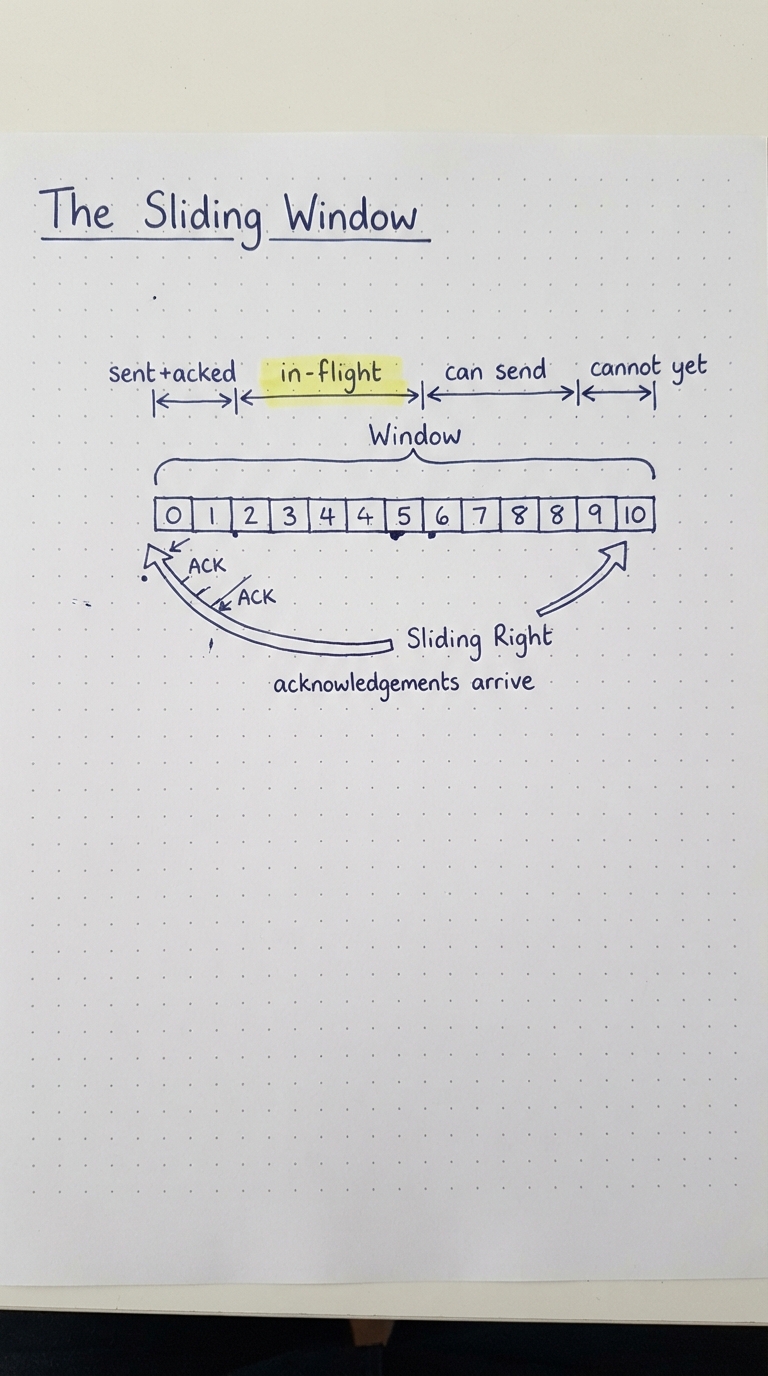 The Sliding Window
sent+acked in-flight can send cannot yet
Window
0 1 2 3 4 4 5 6 7 8 8 9 10
ACK
ACK
Sliding Right
acknowledgements arrive